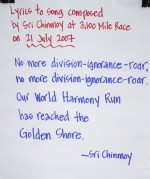 Lyrics to song composed
by Sri Chinmoy at 3,100 Mile Race
on 21 July 2007
No more division-ignorance-roar,
no more division-ignorance-roar.
Our World Harmony Run
has reached the
Golden Shore.
—Sri Chinmoy